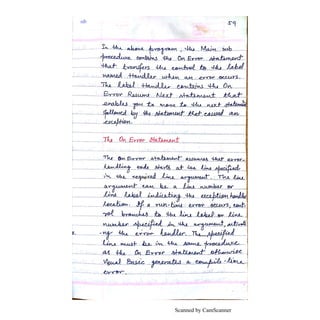 59
In the above program, the Main sub
procedure contains the On Error statement
that transfers the control to the label
named Handler when an error occurs.
The label Handler contains the On
Error Resume Next statement that
enables you to move to the next statement
followed by the statement that caused an
exception.
The On Error Statement
The On Error statement assumes that error-
handling code starts at the line specified
in the required line argument. The line
argument can be a line number or
line label indicating the exception handler
location. If a run-time error occurs, cont-
rol branches to the line label or line
number specified in the argument, activati
-ng the error handler. The specified
line must be in the same procedure
as the On Error statement otherwise
Visual Basic generates a compile-time
error.
Scanned by CamScanner